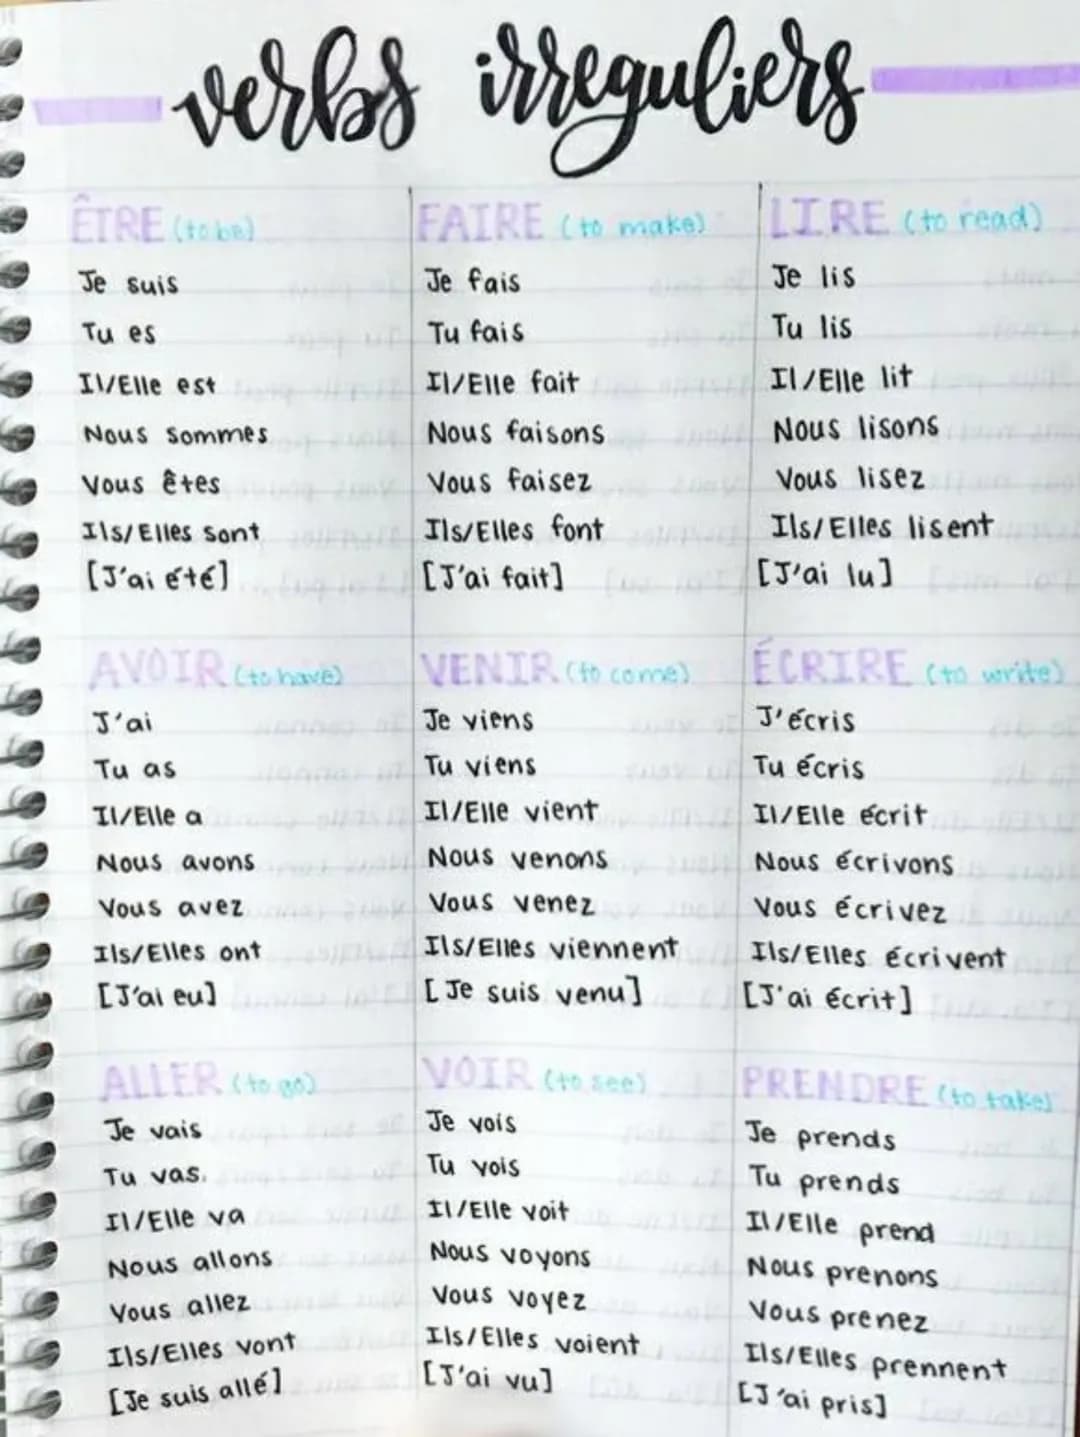 verbs irreguliers
ÊTRE (to be)
Je suis
Tu es
Il/Elle est
Nous sommes
Vous êtes
Ils/Elles sont
[J'ai été]
FAIRE (to make)
Je fais
Tu fais
Il/Elle fait
Nous faisons
Vous faisez
Ils/Elles font
[J'ai fait]
LIRE (to read)
Je lis
Tu lis
Il/Elle lit
Nous lisons
Vous lisez
Ils/Elles lisent
[J'ai lu]
AVOIR (to have)
J'ai
Tu as
Il/Elle a
Nous avons
Vous avez
Ils/Elles ont
[J'ai eu]
VENIR (to come)
Je viens
Tu viens
Il/Elle vient
Nous venons
Vous venez
Ils/Elles viennent
[Je suis venu]
ÉCRIRE (to write)
J'écris
Tu écris
Il/Elle écrit
Nous écrivons
Vous écrivez
Ils/Elles écrivent
[J'ai écrit]
ALLER (to go)
Je vais
Tu vas.
Il/Elle va
Nous allons
Vous allez
Ils/Elles vont
[Je suis allé]
VOIR (to see)
Je vois
Tu vois
Il/Elle voit
Nous voyons
Vous voyez
Ils/Elles voient
[J'ai vu]
PRENDRE (to take)
Je prends
Tu prends
Il/Elle prend
Nous prenons
Vous prenez
Ils/Elles prennent
[J'ai pris]